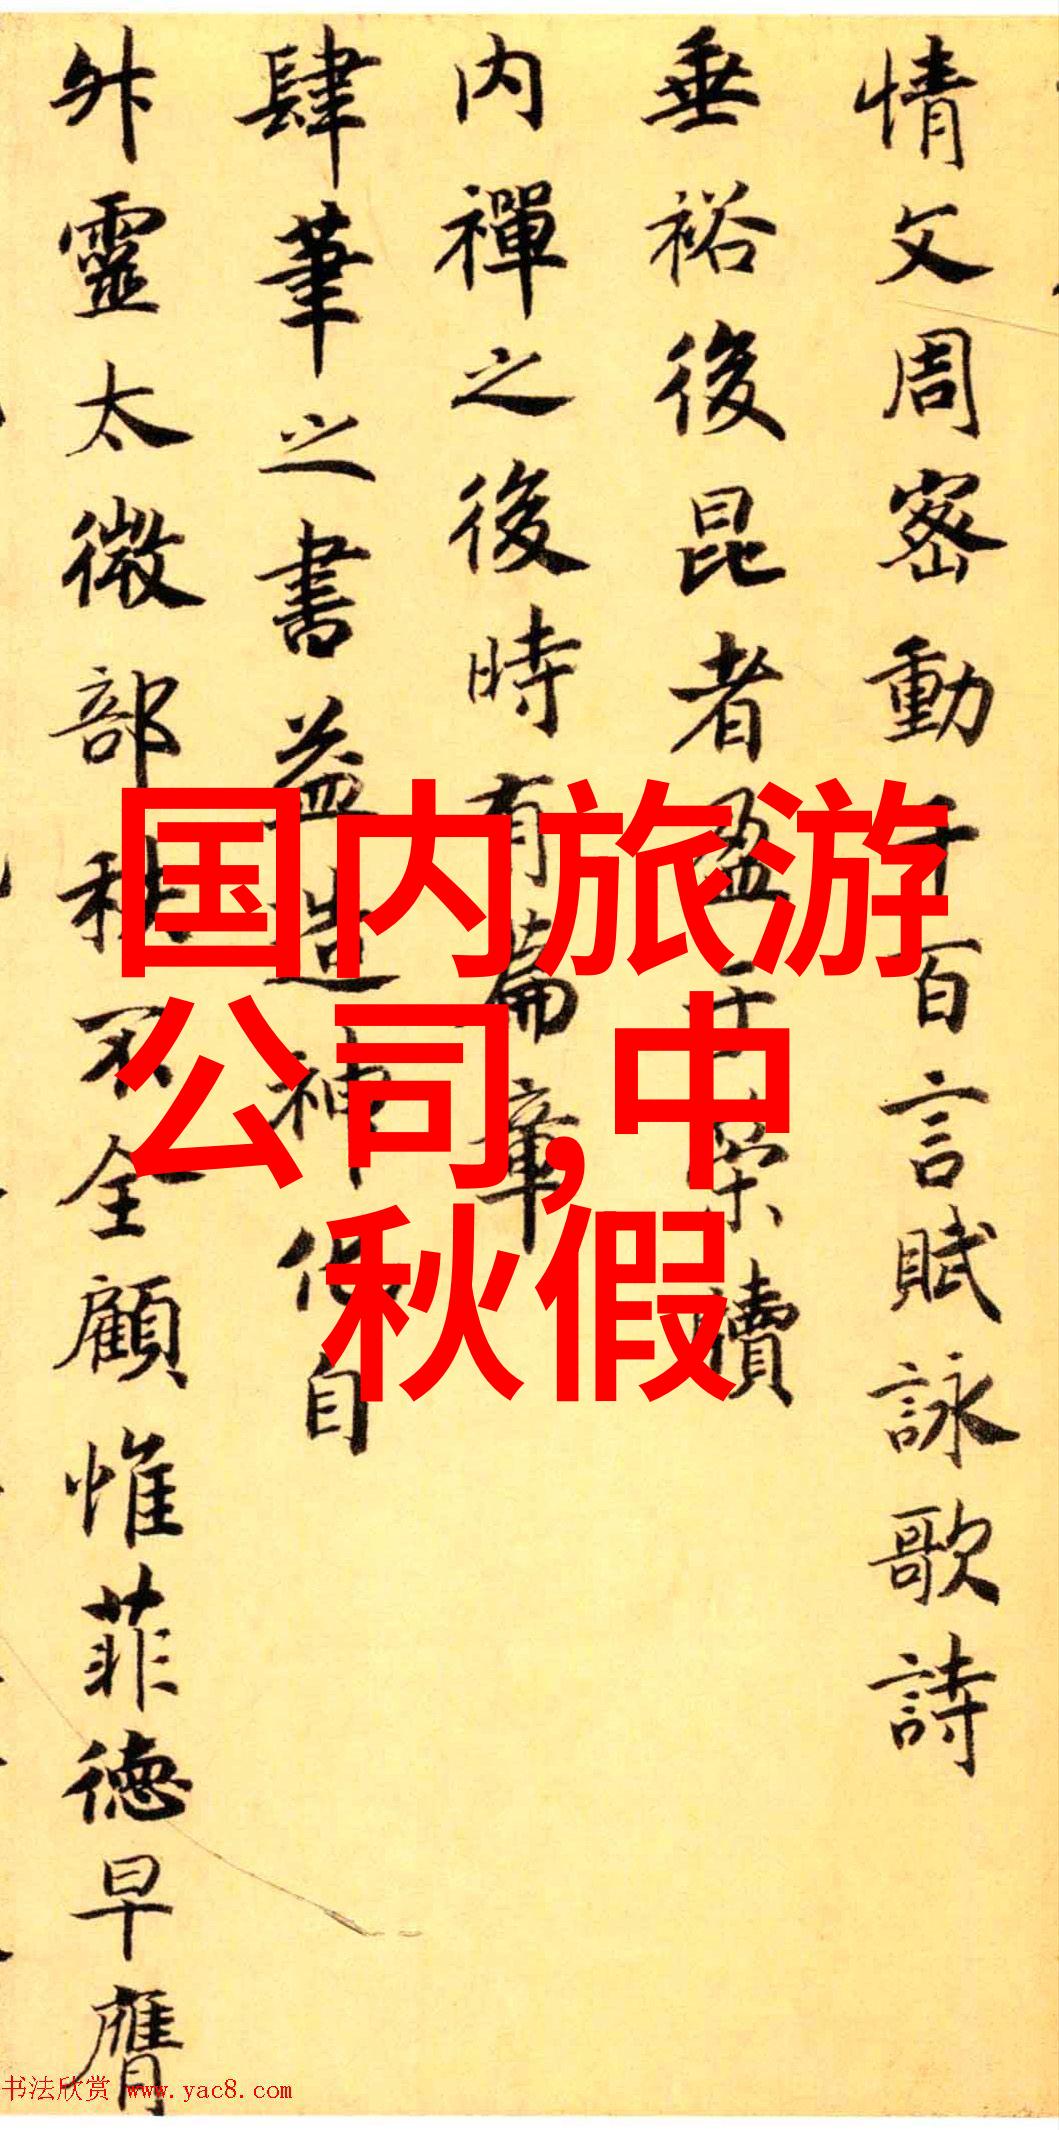 情文周密動千百言賦詠歌詩
垂裕後昆者盈于牘
内禪之後時有篇章
肆筆之書益造神化自
升靈太微部秩不全顧惟菲德早膺
国内旅游
公司,中
秋假
书法欣赏 www.yac8.com